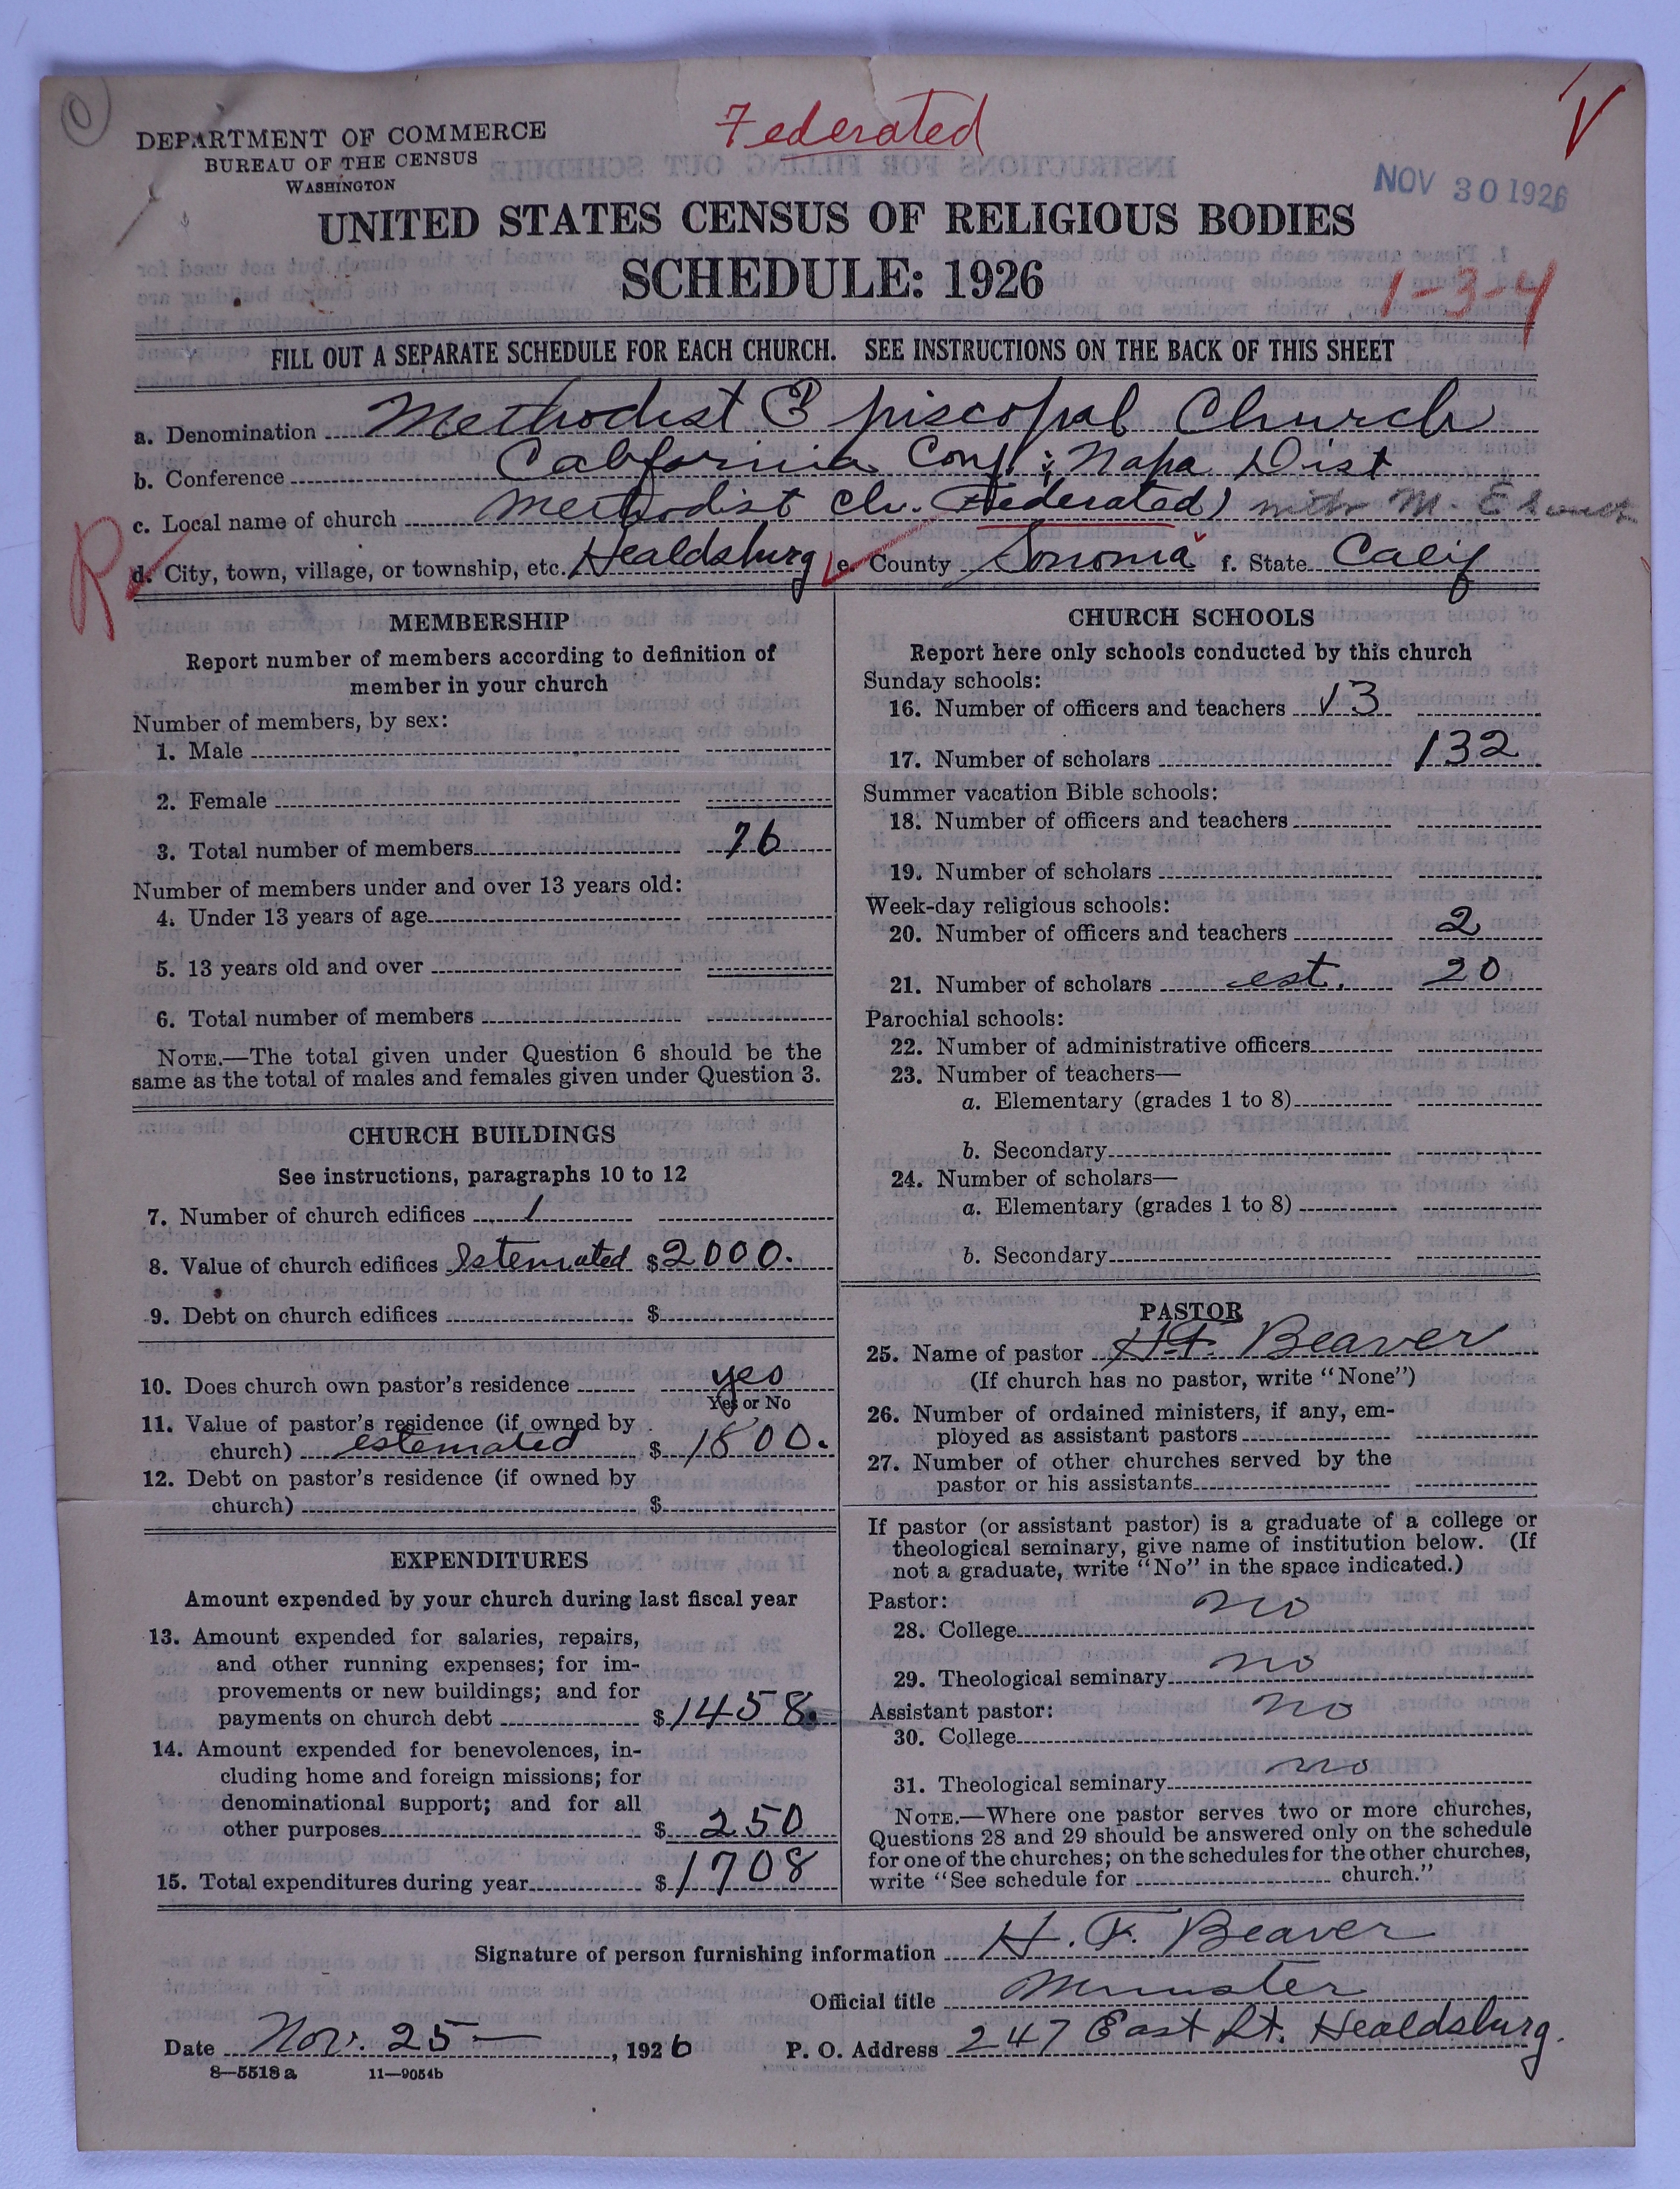 Federated
V
DEPARTMENT OF COMMERCE
BUREAU OF THE CENSUS
WASHINGTON
NOV 30 1926
UNITED STATES CENSUS OF RELIGIOUS BODIES
SCHEDULE: 1926
1-3-4
FILL OUT A SEPARATE SCHEDULE FOR EACH CHURCH. SEE INSTRUCTIONS ON THE BACK OF THIS SHEET
a. Denomination Methodist Episcopal Church
b. Conference California Conf; Napa Dist
c. Local name of church Methodist Ch. (Federated) with M. E South
R
d. City, town, village, or township, etc. Healdsburg e. County Sonoma f. State Calif
MEMBERSHIP
Report number of members according to definition of
member in your church
Number of members, by sex:
1. Male
2. Female
3. Total number of members 76
Number of members under and over 13 years old:
4. Under 13 years of age
5. 13 years old and over
6. Total number of members
NOTE.—The total given under Question 6 should be the
same as the total of males and females given under Question 3.
CHURCH BUILDINGS
See instructions, paragraphs 10 to 12
7. Number of church edifices 1
8. Value of church edifices Estemated $2000.
9. Debt on church edifices $
10. Does church own pastor's residence yes
Yes or No
11. Value of pastor's residence (if owned by
church) estemated $1800.
12. Debt on pastor's residence (if owned by
church) $
EXPENDITURES
Amount expended by your church during last fiscal year
13. Amount expended for salaries, repairs,
and other running expenses; for im-
provements or new buildings; and for
payments on church debt $1458.
14. Amount expended for benevolences, in-
cluding home and foreign missions; for
denominational support; and for all
other purposes $250
15. Total expenditures during year $1708
CHURCH SCHOOLS
Report here only schools conducted by this church
Sunday schools:
16. Number of officers and teachers 13
17. Number of scholars 132
Summer vacation Bible schools:
18. Number of officers and teachers
19. Number of scholars
Week-day religious schools:
20. Number of officers and teachers 2
21. Number of scholars est. 20
Parochial schools:
22. Number of administrative officers
23. Number of teachers—
a. Elementary (grades 1 to 8)
b. Secondary
24. Number of scholars—
a. Elementary (grades 1 to 8)
b. Secondary
PASTOR
25. Name of pastor H.F. Beaver
(If church has no pastor, write "None")
26. Number of ordained ministers, if any, em-
ployed as assistant pastors
27. Number of other churches served by the
pastor or his assistants
If pastor (or assistant pastor) is a graduate of a college or
theological seminary, give name of institution below. (If
not a graduate, write "No" in the space indicated.)
Pastor:
28. College no
29. Theological seminary no
Assistant pastor:
30. College no
31. Theological seminary no
NOTE.—Where one pastor serves two or more churches,
Questions 28 and 29 should be answered only on the schedule
for one of the churches; on the schedules for the other churches,
write "See schedule for church."
Signature of person furnishing information H. F. Beaver
Official title Minister
Date Nov. 25—, 1926 P. O. Address 247 East St. Healdsburg.
8—5518 a 11—9054b